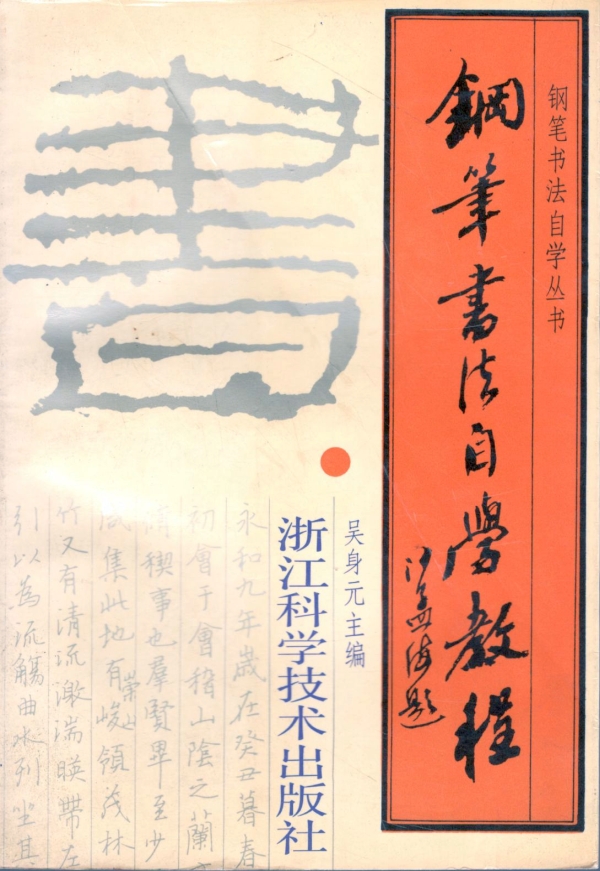 钢笔书法自学丛书
鋼筆書法自學教程
沙孟海题
書
吴身元主编
浙江科学技术出版社
永和九年歲在癸丑暮春
初會于會稽山陰之蘭亭
脩禊事也羣賢畢至少
咸集此地有崇山峻領茂林
竹又有清流激湍暎帶左
引以為流觴曲水列坐其